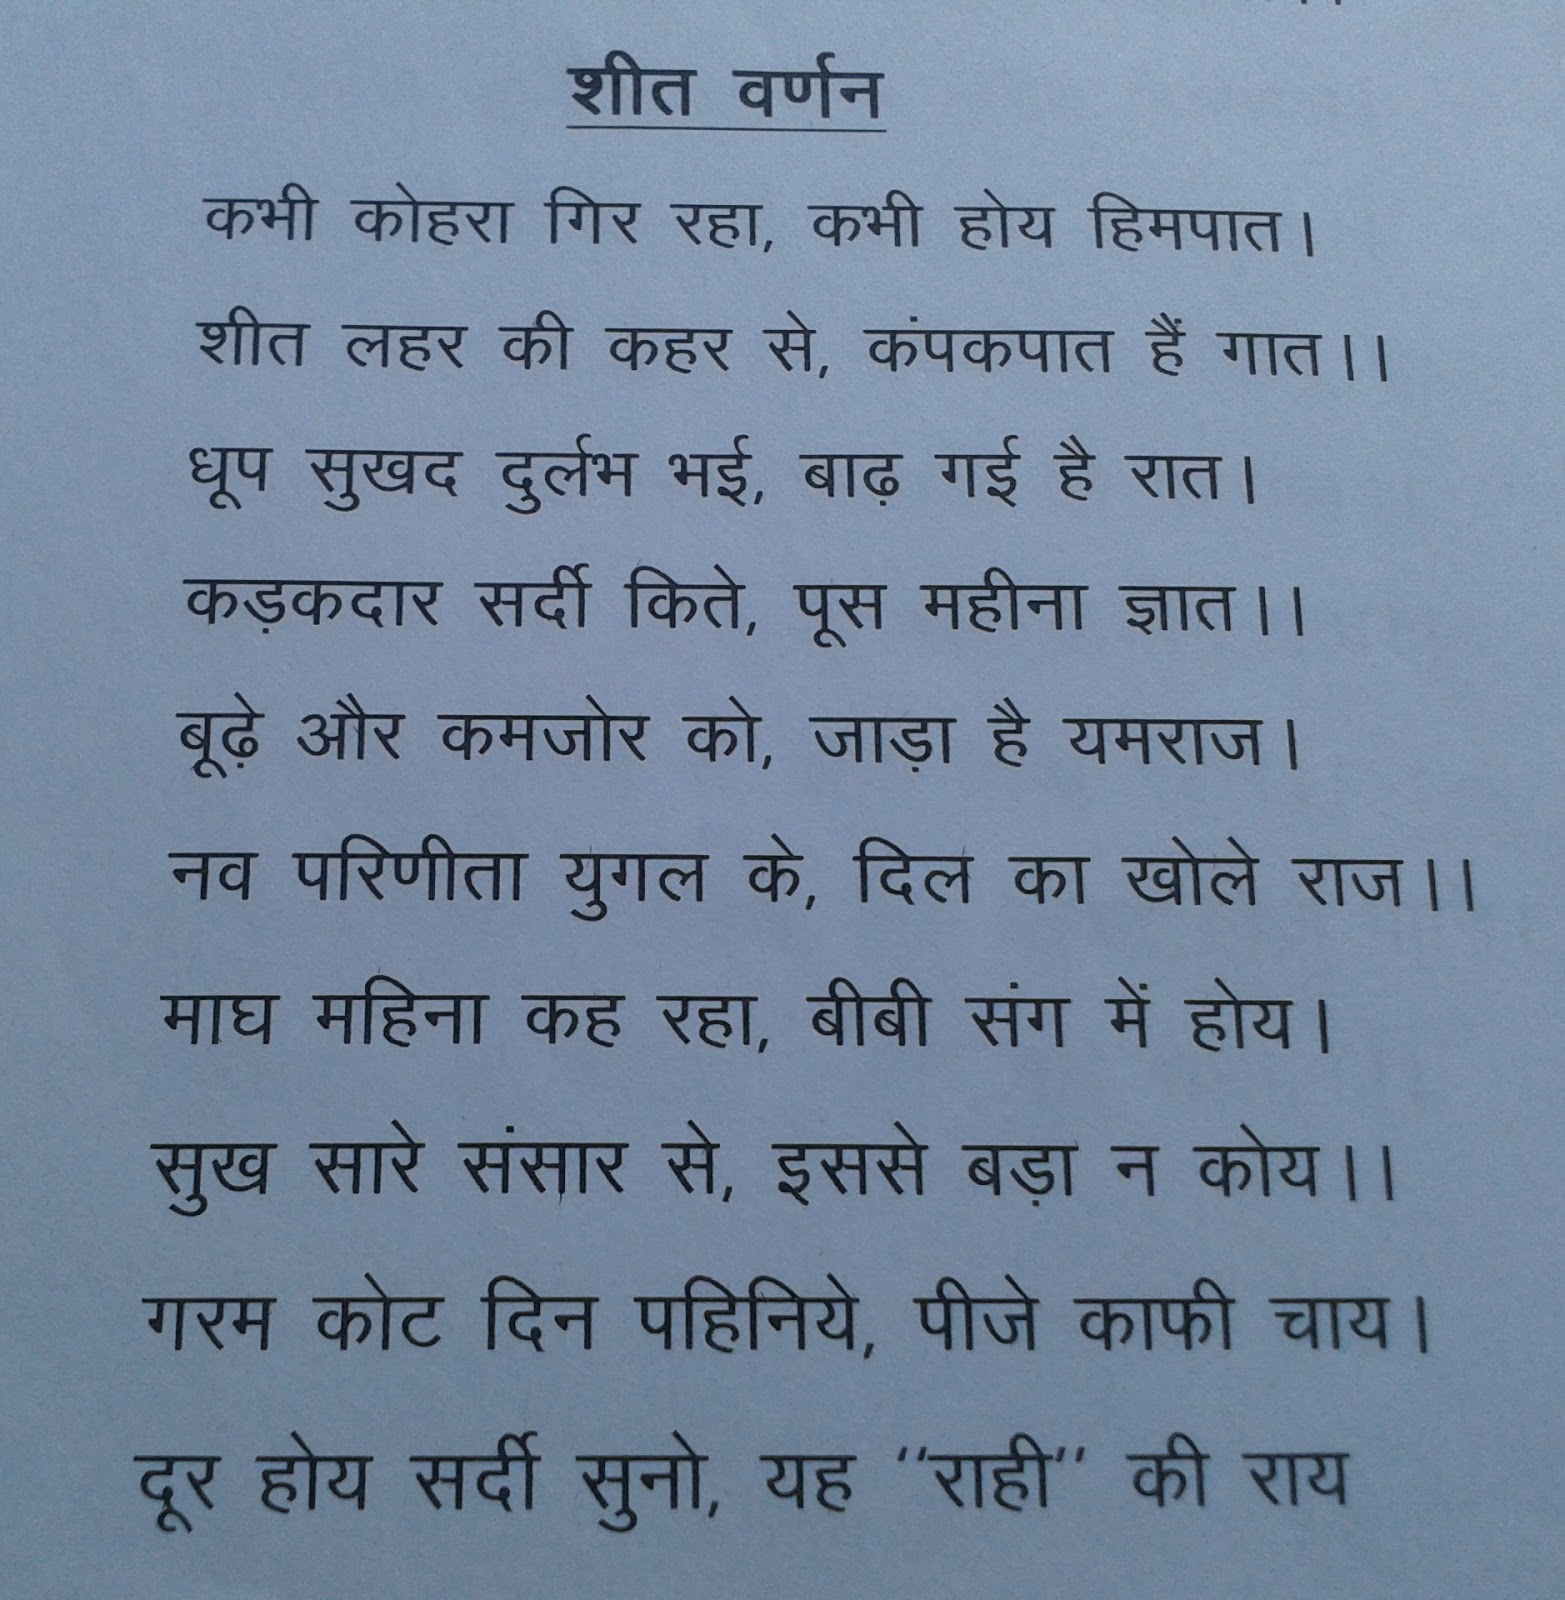 शीत वर्णन
कभी कोहरा गिर रहा, कभी होय हिमपात।
शीत लहर की कहर से, कंपकपात हैं गात।।
धूप सुखद दुर्लभ भई, बाढ़ गई है रात।
कड़कदार सर्दी किते, पूस महीना ज्ञात।।
बूढ़े और कमजोर को, जाड़ा है यमराज।
नव परिणीता युगल के, दिल का खोले राज।।
माघ महिना कह रहा, बीबी संग में होय।
सुख सारे संसार से, इससे बड़ा न कोय।।
गरम कोट दिन पहिनिये, पीजे काफी चाय।
दूर होय सर्दी सुनो, यह ''राही'' की राय